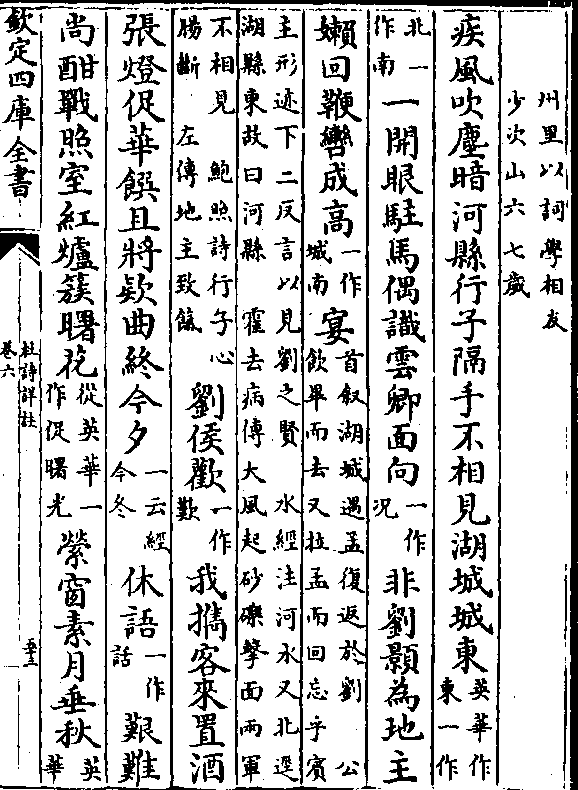 州里以詞學相友
少次山六七歲
疾風吹塵暗河縣行子隔手不相見湖城城東英華作
東一作
北一
作南一開眼駐馬偶識雲卿面向一作
况非劉顥為地主
嬾回鞭轡成高一作
城南宴首叙湖城遇孟復返於劉 公
飲畢而去又拉孟而回忘乎賓
主形迹下二反言以見劉之賢 水經注河水又北逕
湖縣東故曰河縣 霍去病傳大風起砂礫擊面兩軍
不相見 鮑照詩行子心
腸斷 左傳地主致餼劉侯歡一作
歎我擕客來置酒
張燈促華饌且將欵曲終今夕一云經
今冬休語一作
話艱難
尚酣戰照室紅爐簇曙花從英華一
作促曙光縈窗素月垂秋英
華
欽定四庫全書
杜詩詳註
卷六
五三